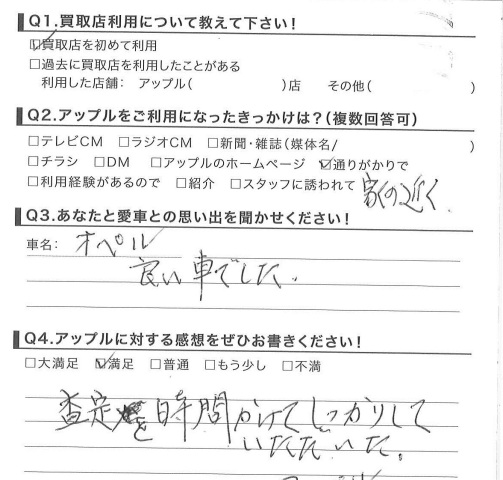 Q1.買取店利用について教えて下さい!
☑買取店を初めて利用
□過去に買取店を利用したことがある
利用した店舗: アップル( )店 その他( )
Q2.アップルをご利用になったきっかけは?(複数回答可)
□テレビCM □ラジオCM □新聞・雑誌(媒体名/ )
□チラシ □DM □アップルのホームページ ☑通りがかりで
□利用経験があるので □紹介 □スタッフに誘われて
家の近く.
Q3.あなたと愛車との思い出を聞かせください!
車名: オペル
良い車でした.
Q4.アップルに対する感想をぜひお書きください!
□大満足 ☑満足 □普通 □もう少し □不満
査定を時間かけてしっかりして
いただいた.